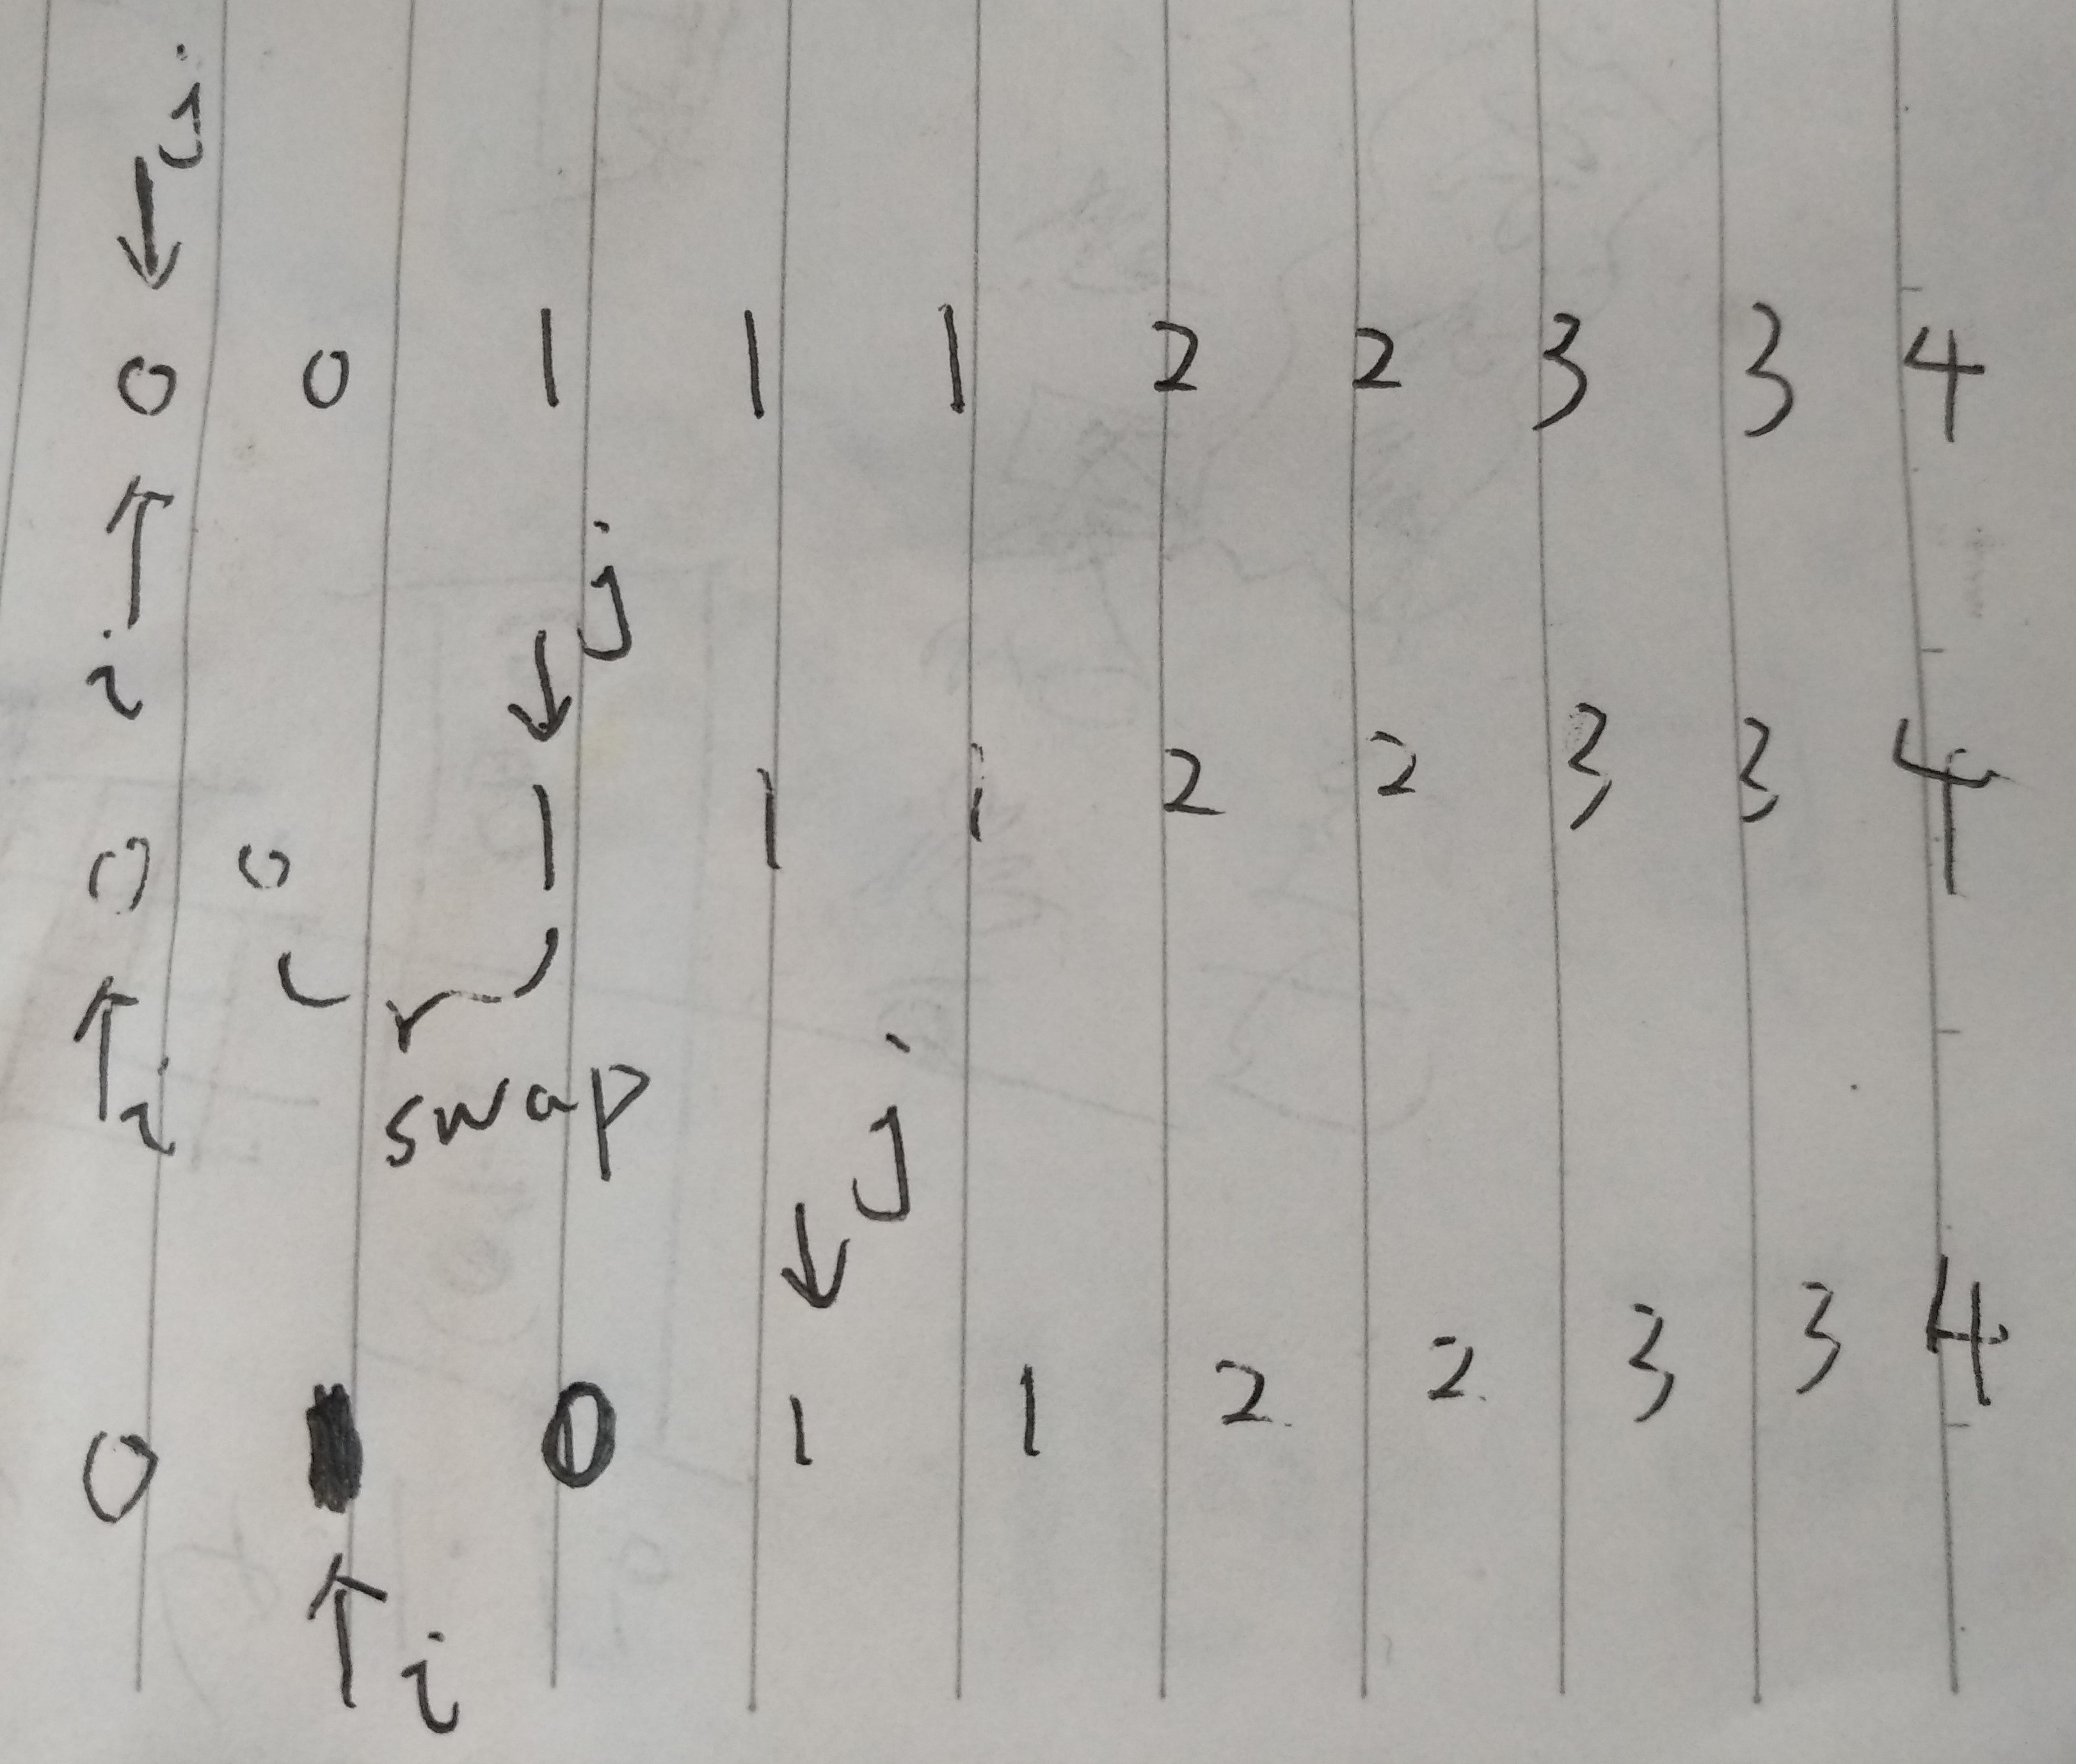 j
↓
0 0 1 1 1 2 2 3 3 4
↑
i
j
↓
0 0 1 1 1 2 2 3 3 4
↑i
swap
j
↓
0 0 1 1 2 2 3 3 4
↑i